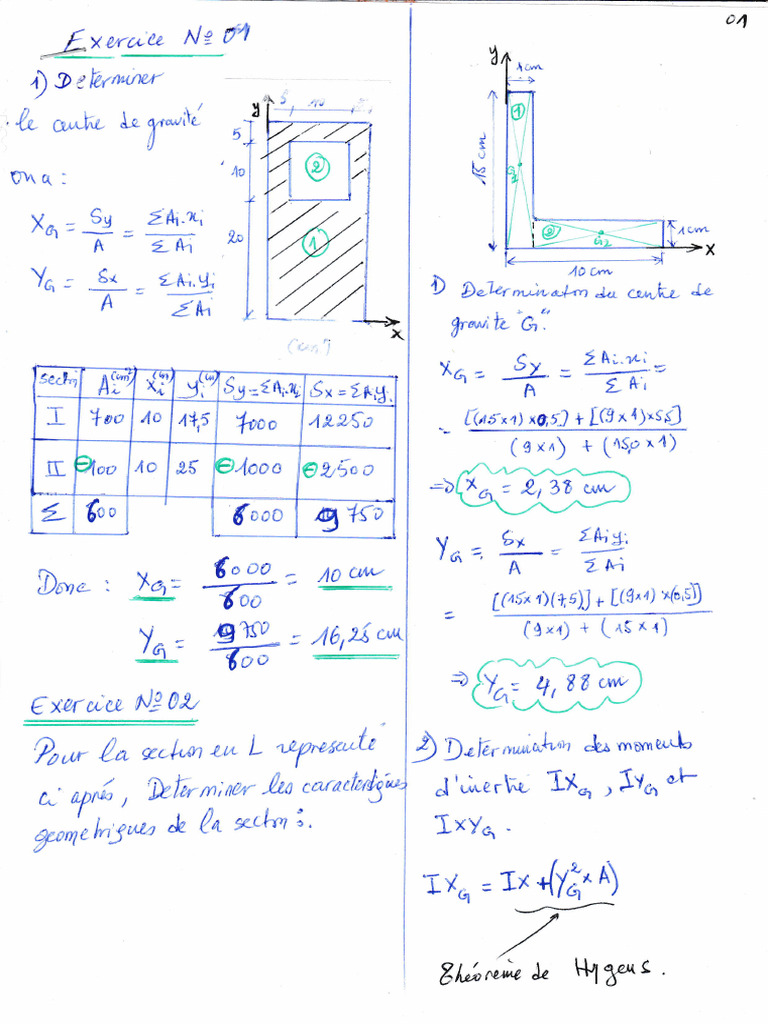 01
Exercice Nº 01
1) Determiner
le centre de gravité
on a :
XG = Sy/A = ΣAi.xi / ΣAi
YG = Sx/A = ΣAi.yi / ΣAi
y
5 10 5
5
10
20
2
1
x
(cm)
section Ai(cm²) xi(cm) yi(cm) Sy=ΣAi.xi Sx=ΣAi.yi
I 700 10 17,5 7000 12250
II -100 10 25 -1000 -2500
Σ 600 6000 9750
Donc : XG = 6000/600 = 10 cm
YG = 9750/600 = 16,25 cm
Exercice Nº 02
Pour la section en L representé
ci aprés, Determiner les caracteristiques
geometriques de la section :.
y
1cm
1
15 cm
G1
2
G2
1cm
x
10 cm
1) Determination du centre de
gravite "G."
XG = Sy/A = ΣAi.xi / ΣAi =
= [(15x1)x0,5] + [(9x1)x5,5] / (9x1) + (15,0x1)
=> XG = 2,38 cm
YG = Sx/A = ΣAiyi / ΣAi
= [(15x1)(7,5)] + [(9x1)x(0,5)] / (9x1) + (15x1)
=> YG = 4,88 cm
2) Determination des moments
d'inertie IXG, IYG et
IXYG.
IXG = IX+(YG²xA)
Théoreme de Hygens.